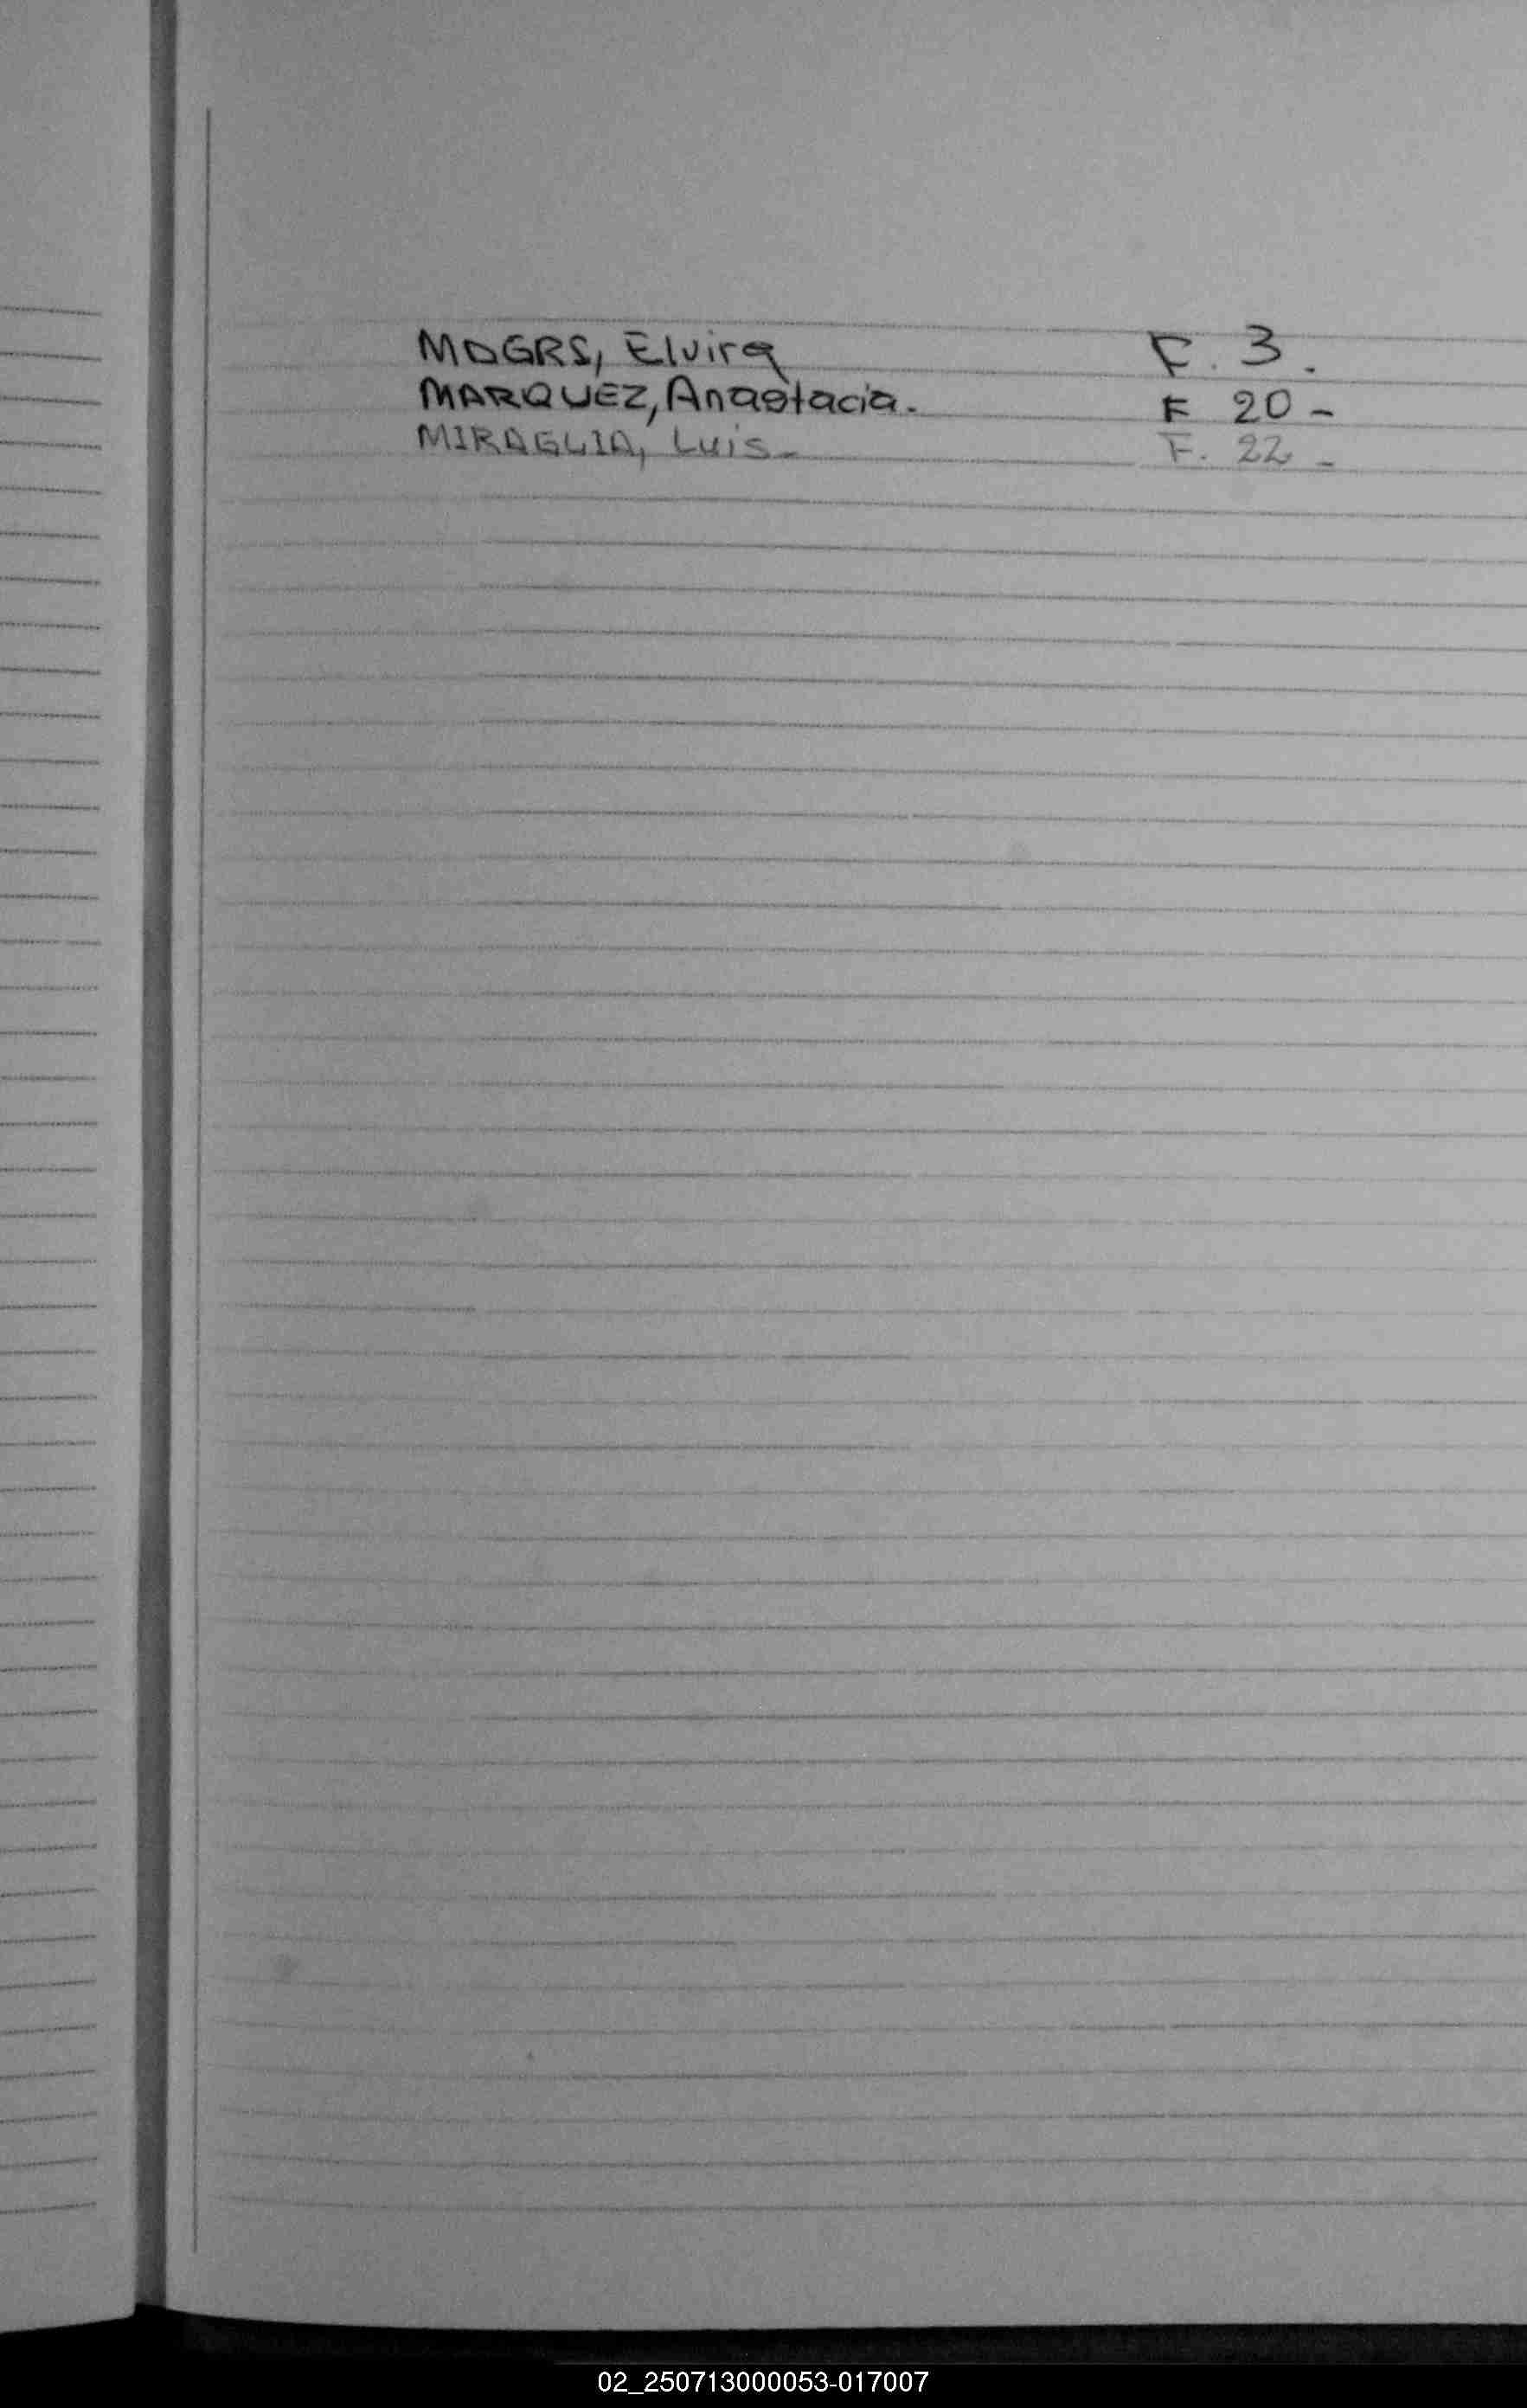 MOGRS, Elvira F. 3.
MARQUEZ, Anastacia. F 20-
MIRAGLIA, Luis- F. 22-
02_250713000053-017007